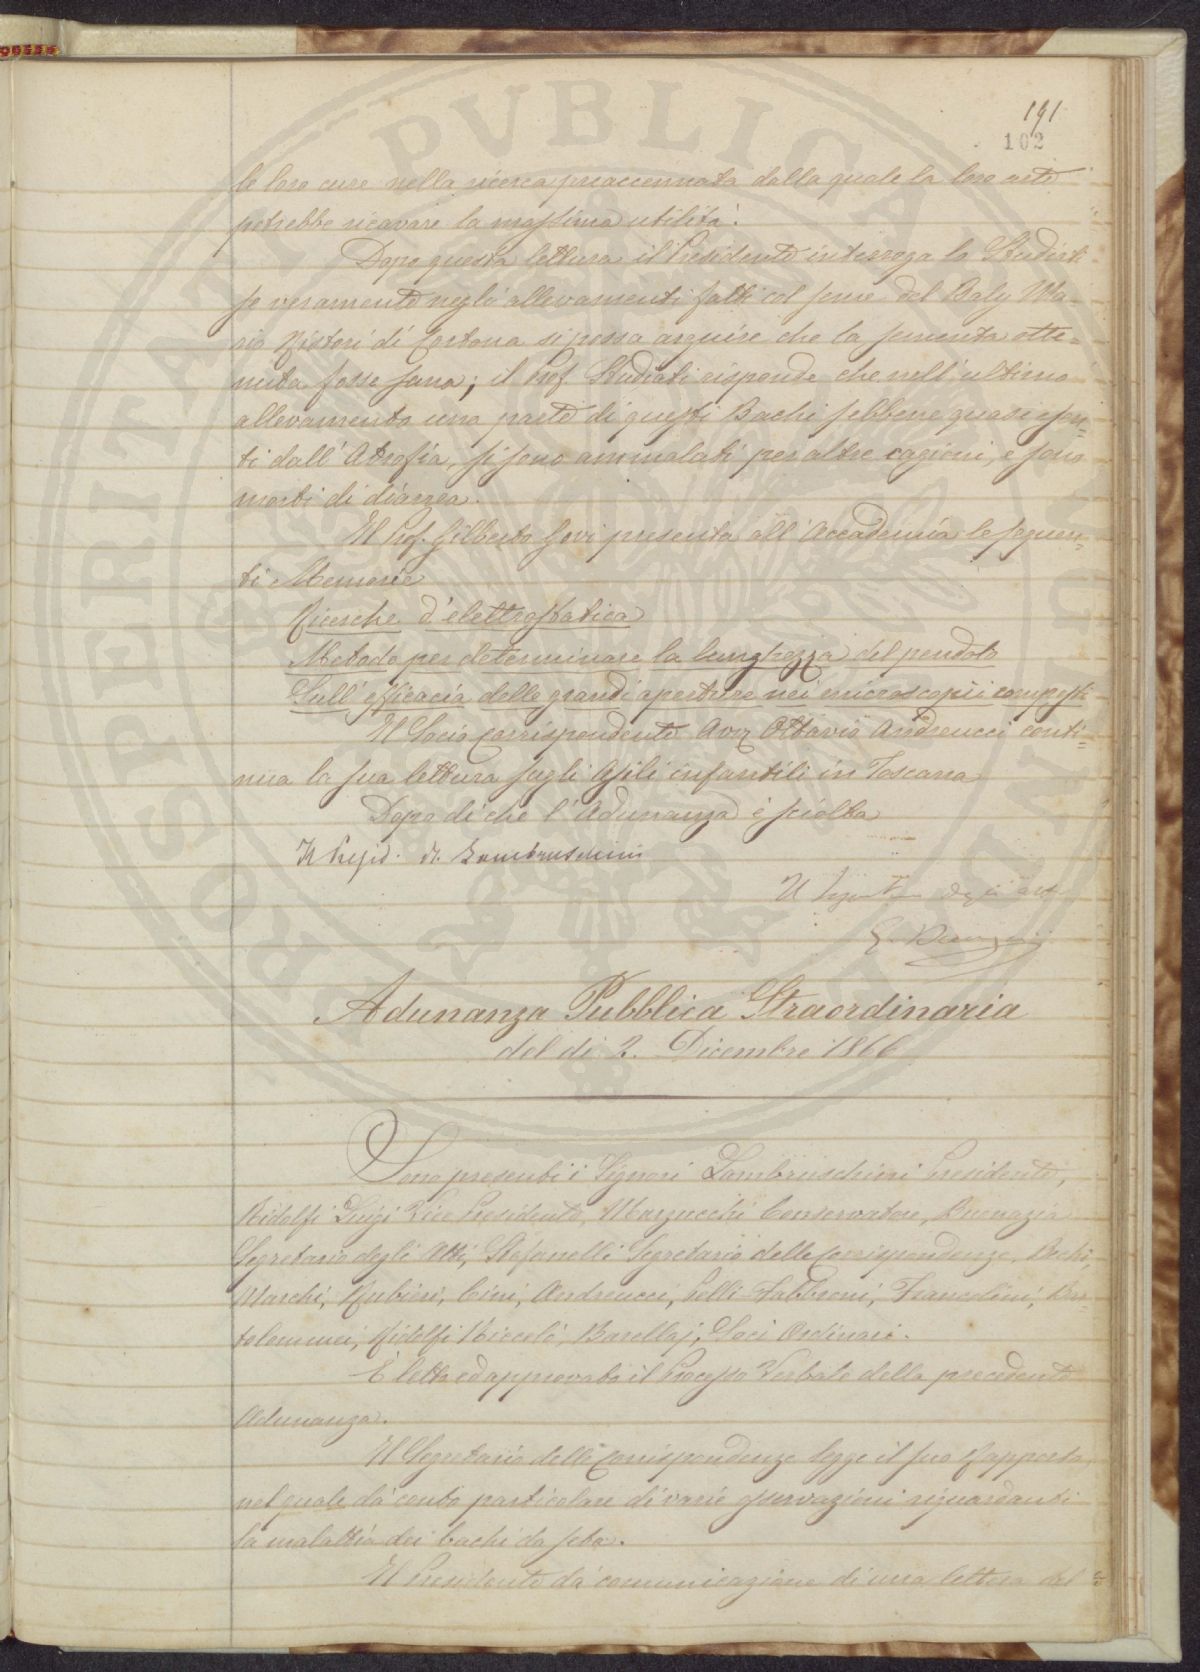 191
102
le loro cure nella ricerca preaccennata dalla quale la loro arte
potrebbe ricavare la massima utilità.
Dopo questa lettura il Presidente interroga lo Studiati
se veramente negli allevamenti fatti col seme del Baly Ma-
rio Ristori di Cortona si possa arguire che la sementa otte=
nuta fosse sana; il Prof. Studiati risponde che nell'ultimo
allevamento una parte di questi Bachi sebbene quasi esen=
ti dall'Atrofia, si sono ammalati per altre cagioni, e sono
morti di diarrea.
Il Prof. Gilberto Govi presenta all'Accademia le seguen=
ti Memorie
Ricerche d'elettrostatica
Metodo per determinare la lunghezza del pendolo
Sull'efficacia delle grandi aperture nei microscopii composti
Il Socio Corrispondente Avv. Ottavio Andreucci conti=
nua la sua lettura sugli Asili infantili in Toscana
Dopo di che l'Adunanza è sciolta
Il Presid. R. Lambruschini
Il Segretario degli Atti
Adunanza Pubblica Straordinaria
del dì 2. Dicembre 1866
Sono presenti i Signori Lambruschini Presidente,
Ridolfi Luigi Vice Presidente, Marzucchi Conservatore, Buonazia
Segretario degli Atti, Stefanelli Segretario delle Corrispondenze, Bechi,
Marchi, Rubieri, Cini, Andreucci, Pelli-Fabbroni, Francolini, Bar=
tolommei, Ridolfi Niccolò, Barellaj, Soci Ordinari.
È letto ed approvato il Processo Verbale della precedente
Adunanza.
Il Segretario delle Corrispondenze legge il suo Rapporto,
nel quale dà conto particolare di varie osservazioni riguardanti
la malattia dei bachi da seta.
Il Presidente dà comunicazione di una lettera del
PROSPERITATI PVBLICAE AVGENDAE